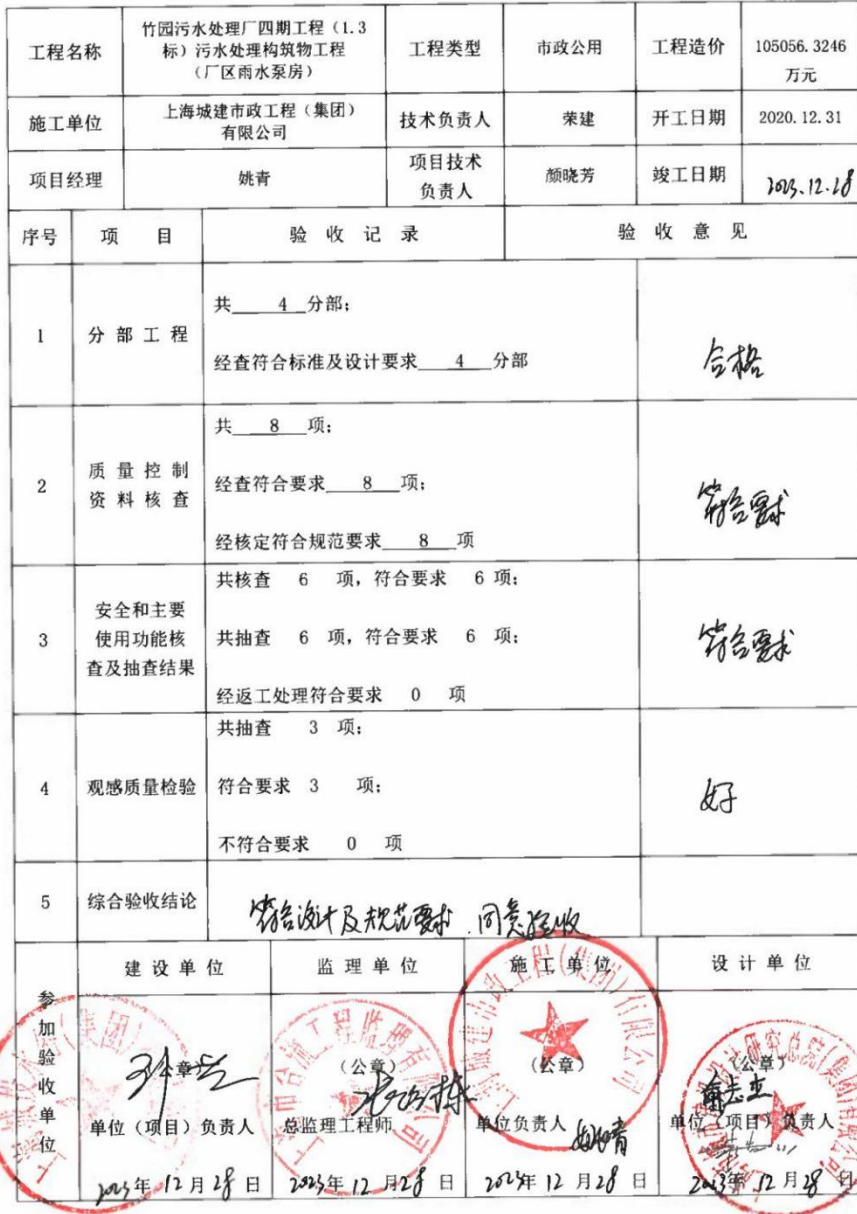 工程名称
竹园污水处理厂四期工程（1.3
标）污水处理构筑物工程
（厂区雨水泵房）
工程类型
市政公用
工程造价
105056.3246
万元
施工单位
上海城建市政工程（集团）
有限公司
技术负责人
荣建
开工日期
2020.12.31
项目经理
姚青
项目技术
负责人
颜晓芳
竣工日期
2023.12.28
序号
项 目
验 收 记 录
验 收 意 见
1
分 部 工 程
共 4 分部；
经查符合标准及设计要求 4 分部
合格
2
质 量 控 制
资 料 核 查
共 8 项；
经查符合要求 8 项；
经核定符合规范要求 8 项
符合要求
3
安全和主要
使用功能核
查及抽查结果
共核查 6 项，符合要求 6 项；
共抽查 6 项，符合要求 6 项；
经返工处理符合要求 0 项
符合要求
4
观感质量检验
共抽查 3 项；
符合要求 3 项；
不符合要求 0 项
好
5
综合验收结论
符合设计及规范要求，同意验收
参加验收单位
建 设 单 位
监 理 单 位
施 工 单 位
设 计 单 位
公章
（公章）
（公章）
（公章）
单位（项目）负责人
总监理工程师
单位负责人
姚青
单位（项目）负责人
2023年 12 月 28 日
2023年 12 月 28 日
2023年 12 月 28 日
2023年 12 月 28 日